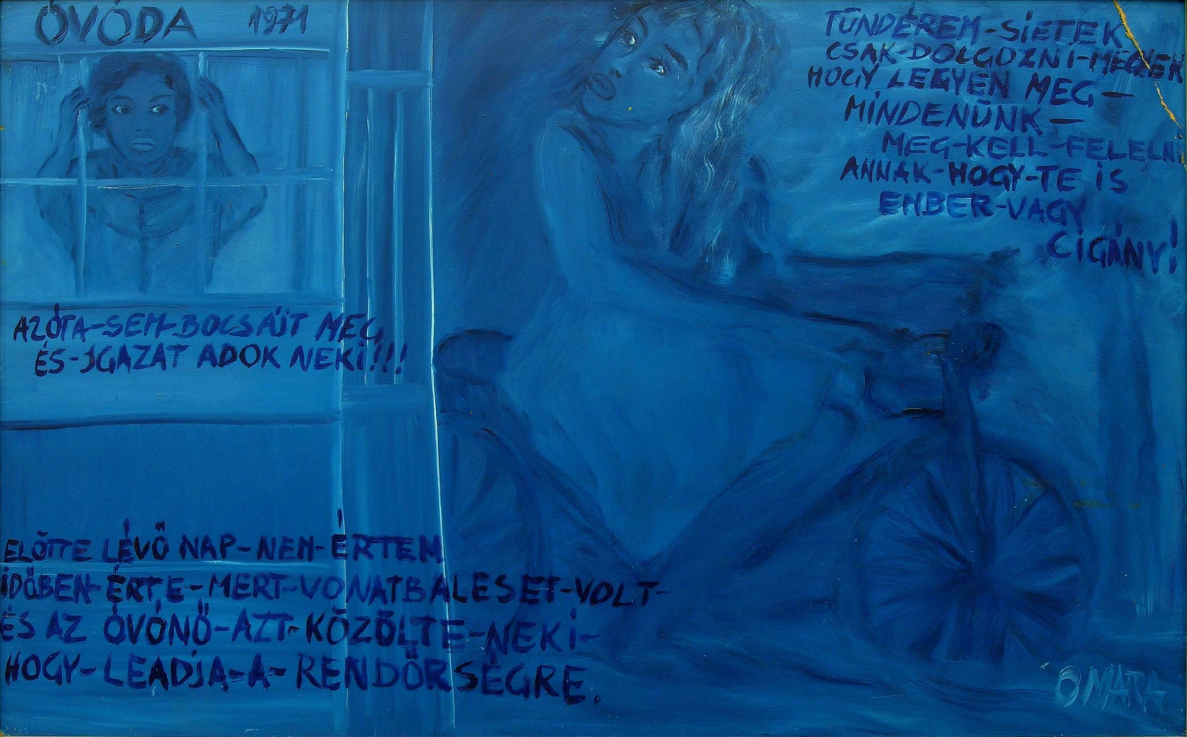 ÓVÓDA 1971
TÜNDÉREM-SIETEK
CSAK-DOLGOZNI-MEGYEK
HOGY LEGYEN MEG-
MINDENÜNK-
MEG-KELL-FELELNI
ANNAK-HOGY-TE IS
EMBER-VAGY
CIGÁNY!
AZÓTA-SEM-BOCSÁJT MEG
ÉS-IGAZAT ADOK NEKI!!!
ELŐTTE LÉVŐ NAP-NEM-ÉRTEM
IDŐBEN-ÉRTE-MERT-VONATBALESET-VOLT-
ÉS AZ ÓVÓNŐ-AZT-KÖZÖLTE-NEKI-
HOGY-LEADJA-A-RENDŐRSÉGRE.
OMARA